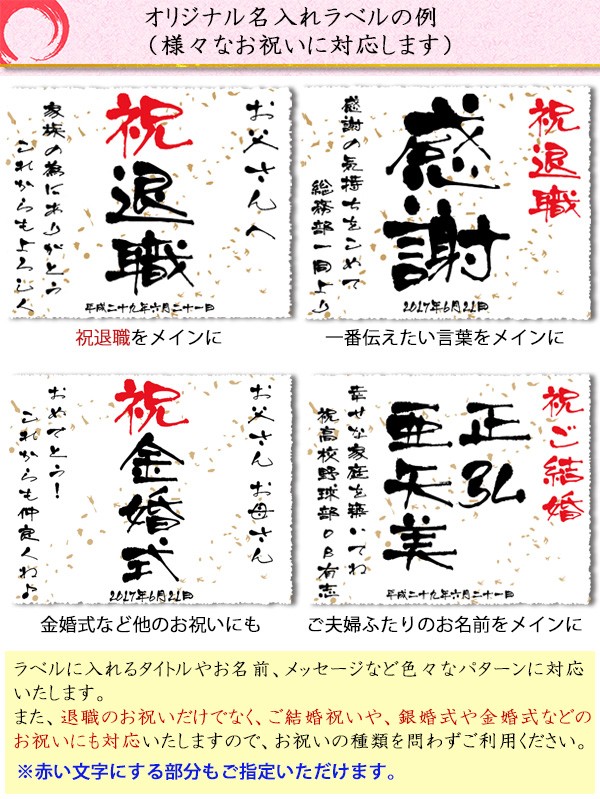 オリジナル名入れラベルの例
（様々なお祝いに対応します）
お父さんへ
祝退職
家族の為にありがとう
これからもよろしく
平成二十九年六月二十一日
祝退職をメインに
祝退職
感謝
感謝の気持ちをこめて
総務部一同より
2017年6月21日
一番伝えたい言葉をメインに
お父さん お母さん
祝金婚式
おめでとう！
これからも仲良くね♪
2017年6月21日
金婚式など他のお祝いにも
祝ご結婚
正弘
亜矢美
幸せな家庭を築いてね
祝高校野球部ＯＢ有志
平成二十九年六月二十一日
ご夫婦ふたりのお名前をメインに
ラベルに入れるタイトルやお名前、メッセージなど色々なパターンに対応
いたします。
また、退職のお祝いだけでなく、ご結婚祝いや、銀婚式や金婚式などの
お祝いにも対応いたしますので、お祝いの種類を問わずご利用ください。
※赤い文字にする部分もご指定いただけます。